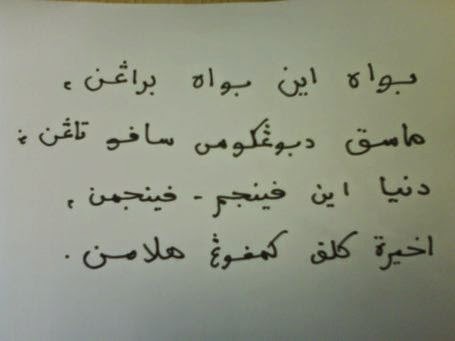 بواه اين بواه براڠن ،
ماسق دبوڠكوس سافو تاڠن ؛
دنيا اين فينجم - فينجمن ،
اخيرة كلق كمفوڠ هلامن .